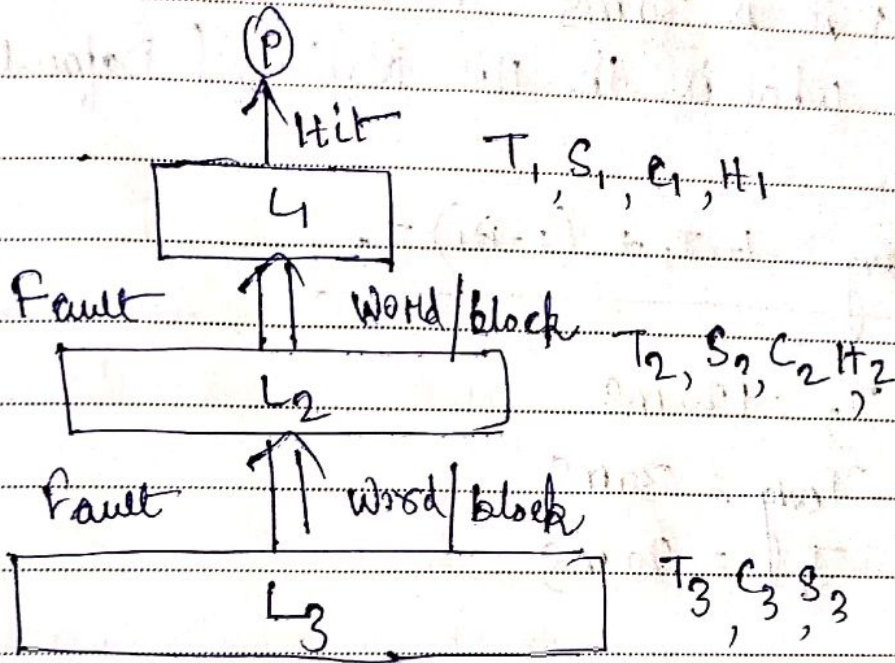 P
Hit
T1, S1, C1, H1
L1
Fault Word/block
T2, S2, C2, H2
L2
Fault Word/block
T3, C3, S3
L3